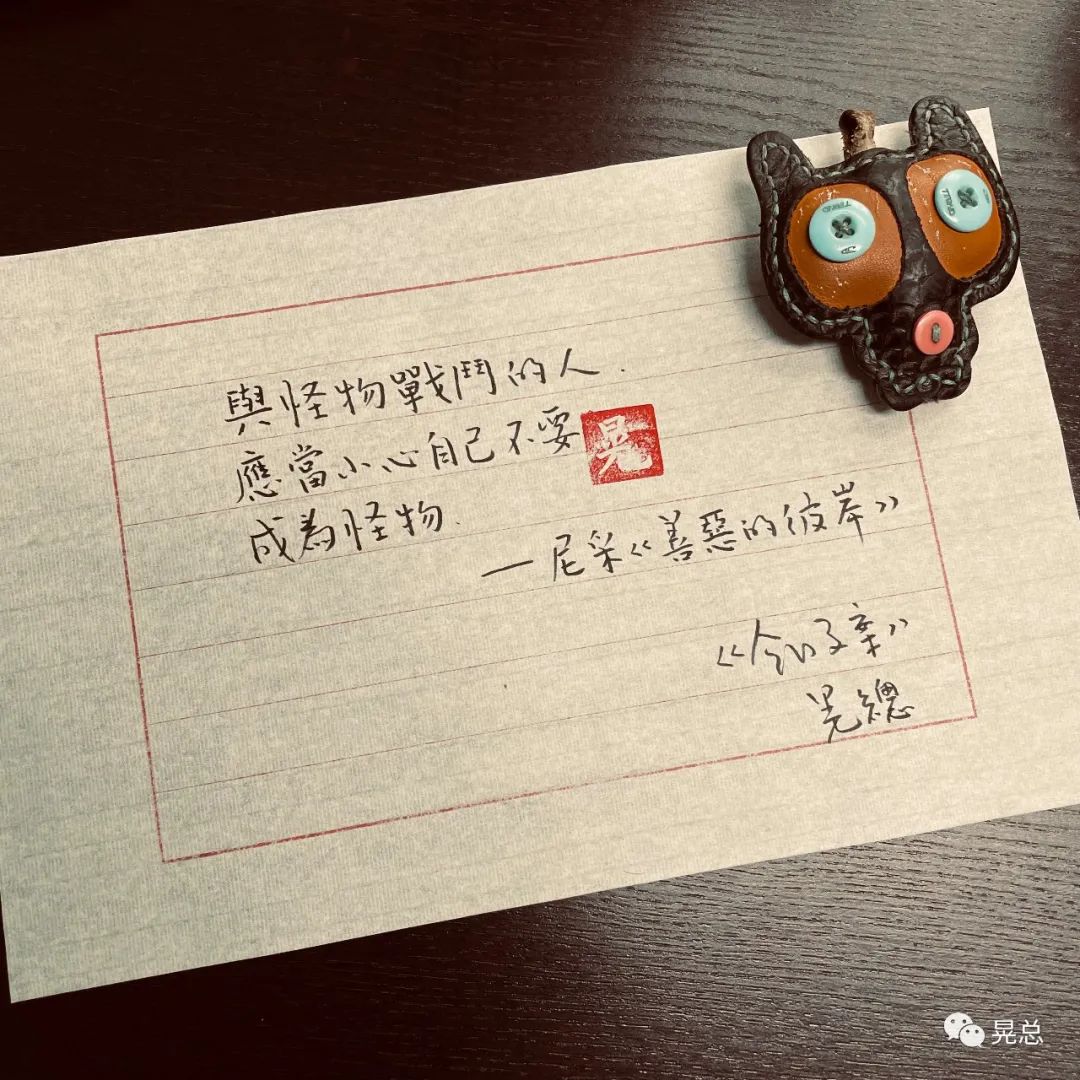 與怪物戰鬥的人.
應當小心自己不要
晃
成為怪物.
—尼采《善惡的彼岸》
晃總
晃总